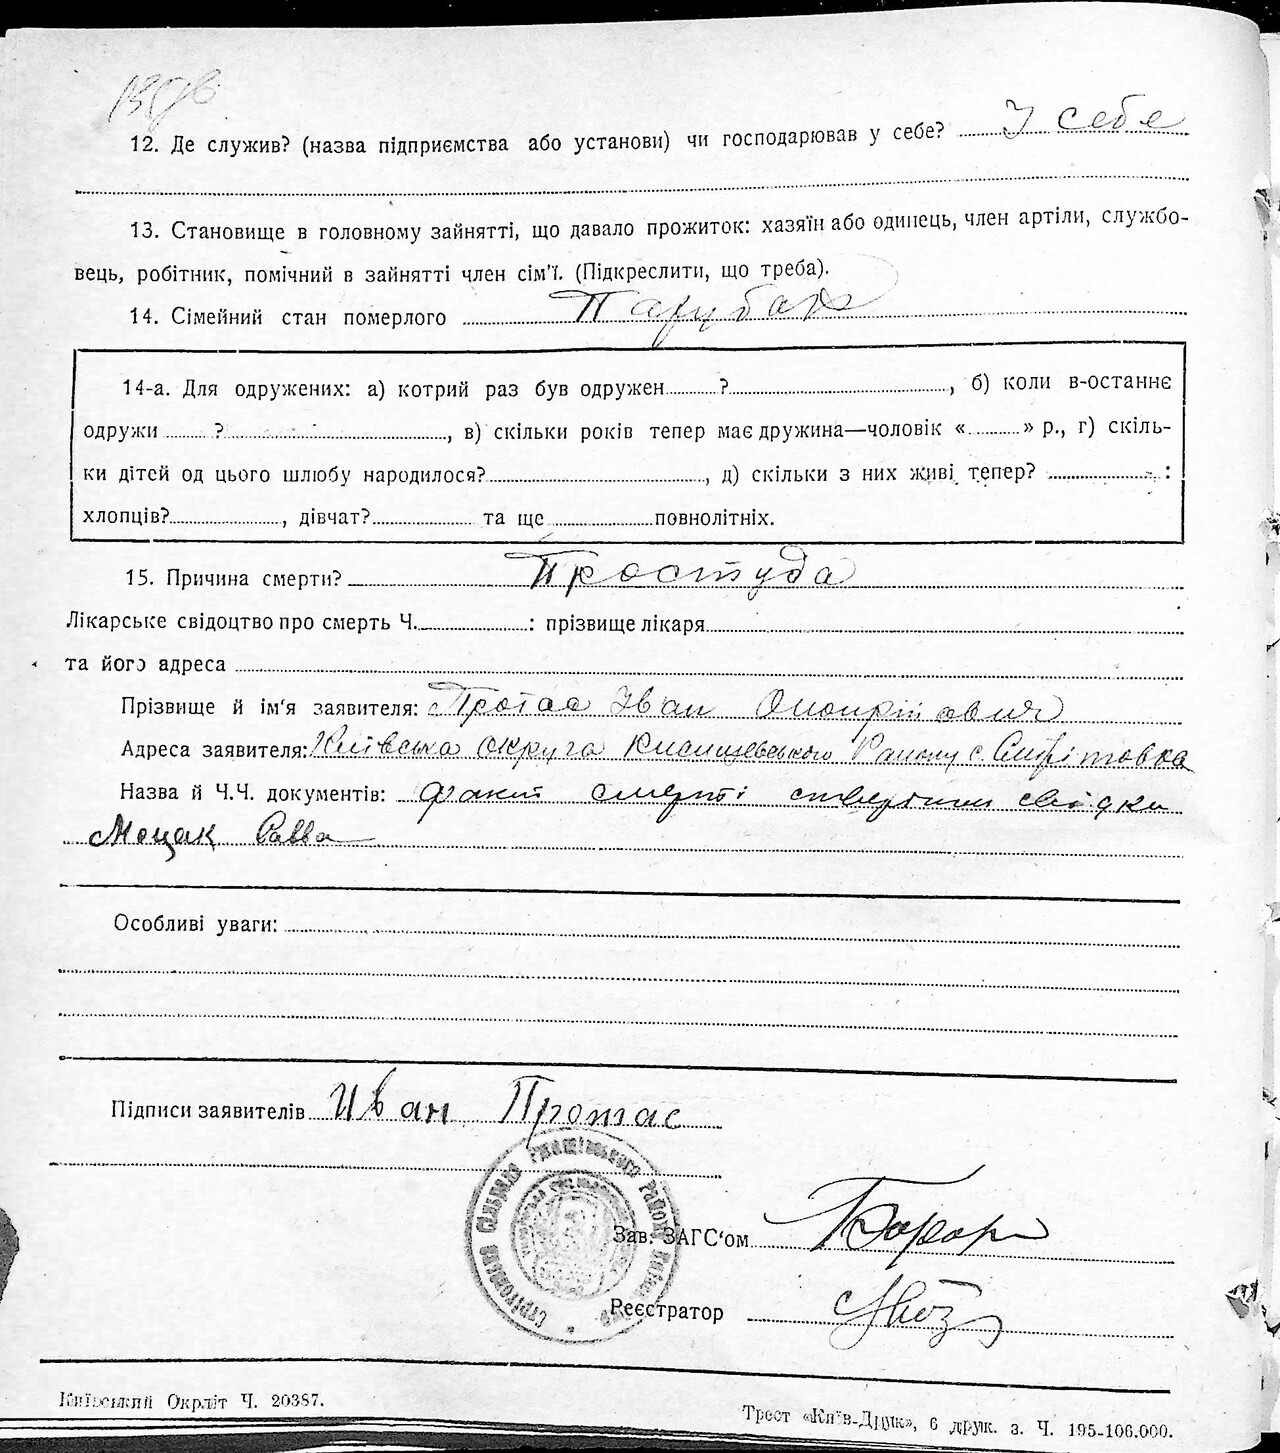 12. Де служив? (назва підприємства або установи) чи господарював у себе? У себе
13. Становище в головному зайнятті, що давало прожиток: хазяїн або одинець, член артілі, службо-
вець, робітник, помічний в зайнятті член сім'ї. (Підкреслити, що треба).
14. Сімейний стан померлого Парубок
14-а. Для одружених: а) котрий раз був одружен ? , б) коли в-останнє
одружи ? , в) скільки років тепер має дружина—чоловік « » р., г) скіль-
ки дітей од цього шлюбу народилося? , д) скільки з них живі тепер? :
хлопців? , дівчат? та ще повнолітніх.
15. Причина смерти? Простуда
Лікарське свідоцтво про смерть Ч. : прізвище лікаря
та його адреса
Прізвище й ім'я заявителя: Протас Іван
Адреса заявителя: Київська округа Району с.
Назва й Ч.Ч. документів: факт смерті ствердили свідки
Мощак Савва
Особливі уваги:
Підписи заявителів Иван Протас
Зав. ЗАГС'ом
Реєстратор
Київський Окрліт Ч. 20387.
Трест «Київ-Друк», 6 друк. з. Ч. 195-106.000.